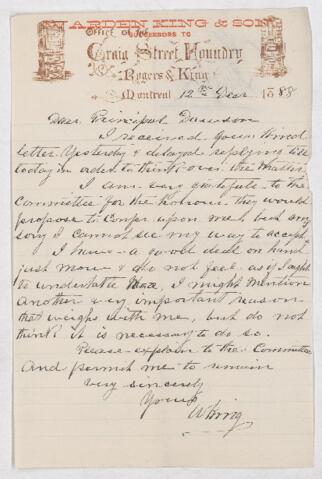 WARDEN KING & SON
Office of the
SUCCESSORS TO
Craig Street Foundry
Rogers & King
Montreal 12th Decr 1888
Dear Principal Dawson
I received your kind
letter yesterday & delayed replying till
today in order to think over the matter
I am very grateful to the
Committee for the honour they would
propose to confer upon me but am
sorry I cannot see my way to accept
I have a good deal on hand
just now & do not feel as if I ought
to undertake more, I might mention
another & very important reason
that weighs with me, but do not
think it is necessary to do so.
Please explain to the Committee
and permit me to remain
Very sincerely
Yours
W King